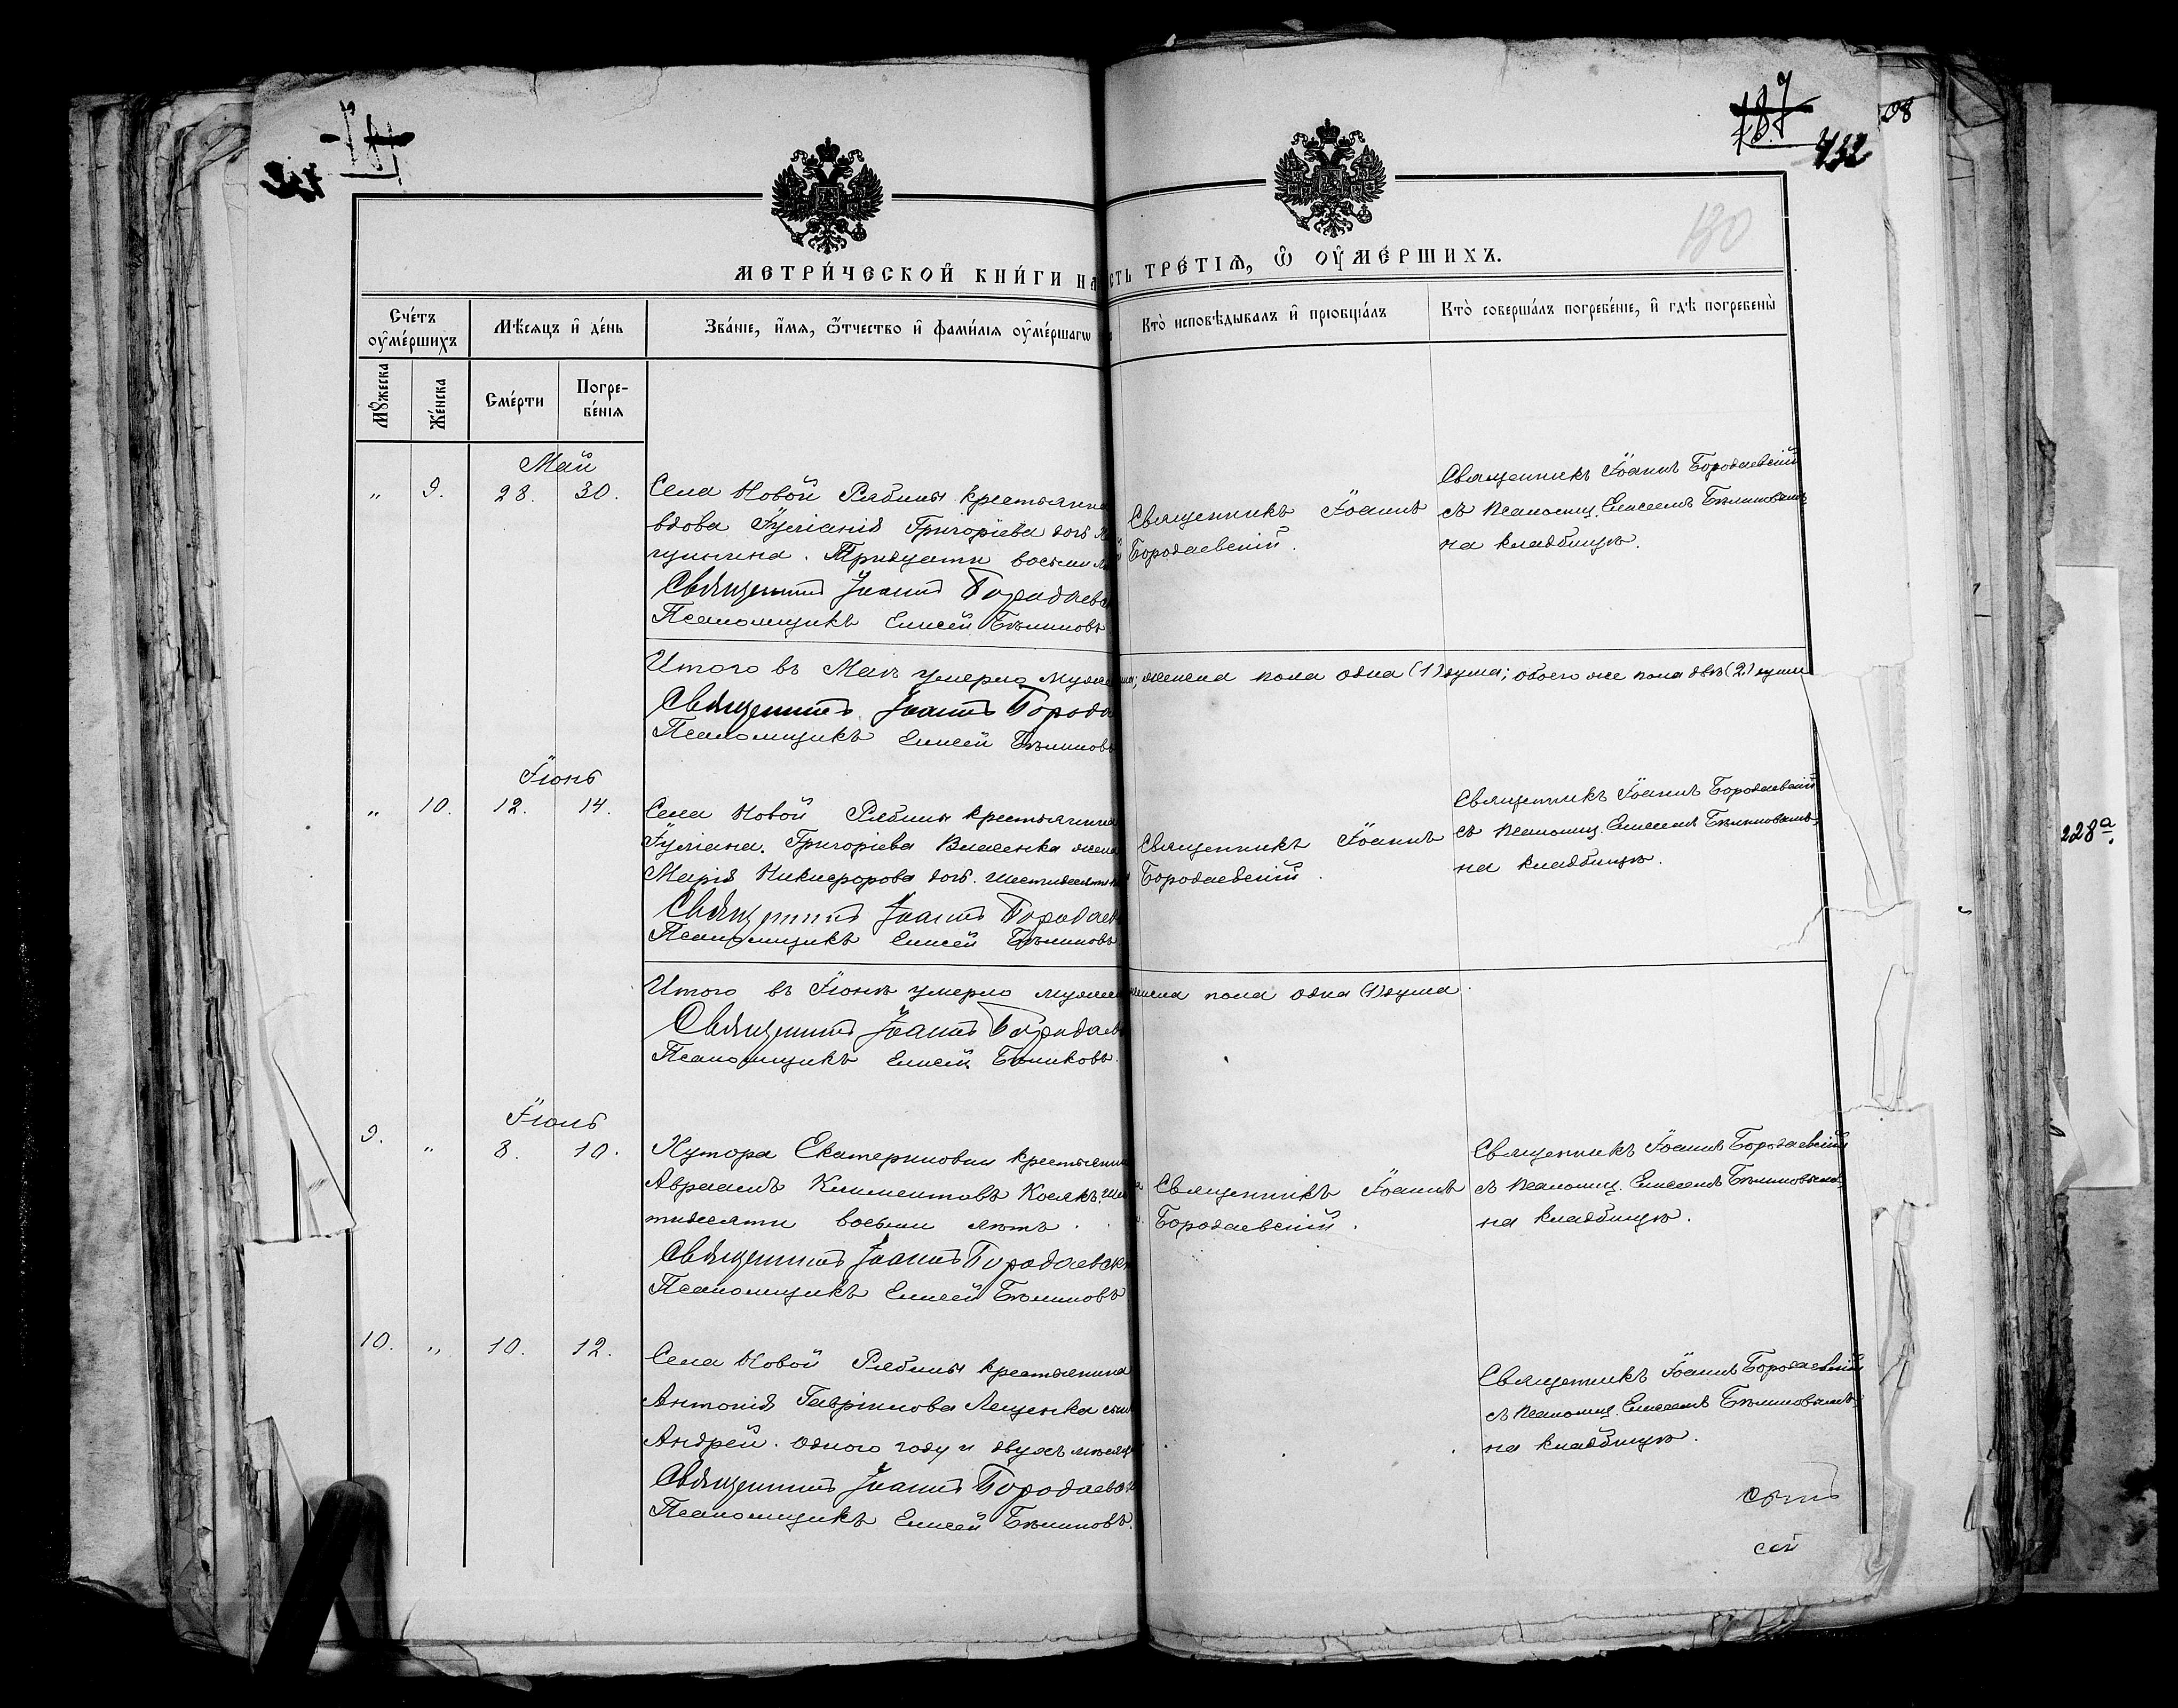 187
432
08
130
МЕТРИ́ЧЕСКОЙ КНИ́ГИ ЧАСТЬ ТРЕ́ТІѦ, Ѡ ОУ҆МЕ́РШИХЪ.
Сче́тъ оу҆ме́ршихъ
Мѣ́сяцъ и҆ де́нь
Зва́нїе, и҆́мѧ, ѻ҆́тчество и҆ фами́лїѧ оу҆ме́ршагѡ
Кто̀ исповѣ́дывалъ и҆ прїобща́лъ
Кто̀ соверша́лъ погребе́нїе, и҆ гдѣ̀ погребены̀
Мꙋ́жеска
Же́нска
Сме́рти
Погре-
бе́нїѧ
Май
" 9. 28. 30.
Села Новой Рябины крестьянина
вдова Іуліанія Григоріева дочь
Тридцати восьми
Священникъ Іоаннъ Бородаевск
Псаломщикъ Елисей Бѣлиновъ
Священникъ Іоаннъ
Бородаевскій.
Священникъ Іоаннъ Бородаевскій
съ псаломщ. Елисеемъ Бѣлиновымъ
на кладбищѣ.
Итого въ Маѣ умерло мужеска женска пола одна (1) душа; обоего же пола двѣ (2) души
Священникъ Іоаннъ Борода
Псаломщикъ Елисей Бѣлиновъ
Іюнь
" 10. 12. 14.
Села Новой Рябины крестьянина
Іуліана Григоріева Власенка жена
Марія Никифорова дочь. Шестидесяти
Священникъ Іоаннъ Бородаев
Псаломщикъ Елисей Бѣлиновъ
Священникъ Іоаннъ
Бородаевскій.
Священникъ Іоаннъ Бородаевскій
съ псаломщ. Елисеемъ Бѣлиновымъ
на кладбищѣ.
228а
Итого въ Іюнѣ умерло женска пола одна (1) душа.
Священникъ Іоаннъ Бородаев
Псаломщикъ Елисей Бѣлиновъ
Іюль
9. " 8. 10.
Хутора Екатериновки крестьянинъ
Авраамъ Климентовъ Косякъ. Шес
тидесяти восьми лѣтъ.
Священникъ Іоаннъ Бородаевск
Псаломщикъ Елисей Бѣлиновъ
Священникъ Іоаннъ
Бородаевскій.
Священникъ Іоаннъ Бородаевскій
съ псаломщ. Елисеемъ Бѣлиновымъ
на кладбищѣ.
10. " 10. 12.
Села Новой Рябины крестьянина
Антонія Гавріилова Лещенка сынъ
Андрей. Одного году и двухъ мѣсяц
Священникъ Іоаннъ Бородаевск
Псаломщикъ Елисей Бѣлиновъ.
Священникъ Іоаннъ Бородаевскій
съ псаломщ. Елисеемъ Бѣлиновымъ
на кладбищѣ.